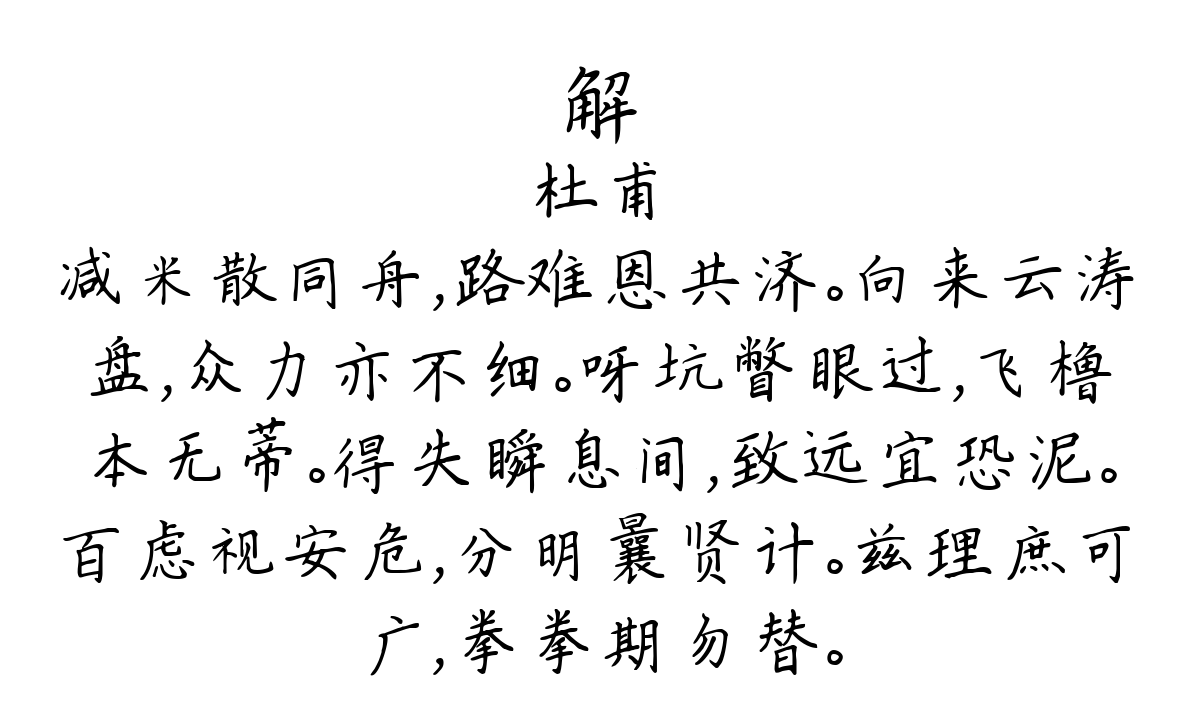 解
杜甫
减米散同舟,路难恩共济。向来云涛
盘,众力亦不细。呀坑瞥眼过,飞橹
本无蒂。得失瞬息间,致远宜恐泥。
百虑视安危,分明曩贤计。兹理庶可
广,拳拳期勿替。